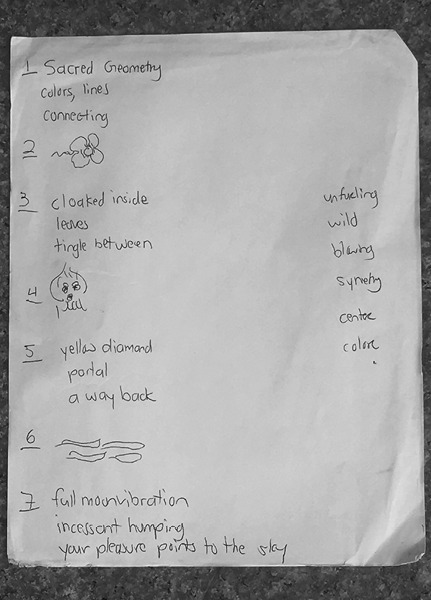 1 Sacred Geometry
colors, lines
connecting
2
3 cloaked inside
leaves
tingle between
4
5 yellow diamond
portal
a way back
6
7 full moon vibration
incessant humping
your pleasure points to the sky
unfueling
wild
blowing
symetry
centre
color